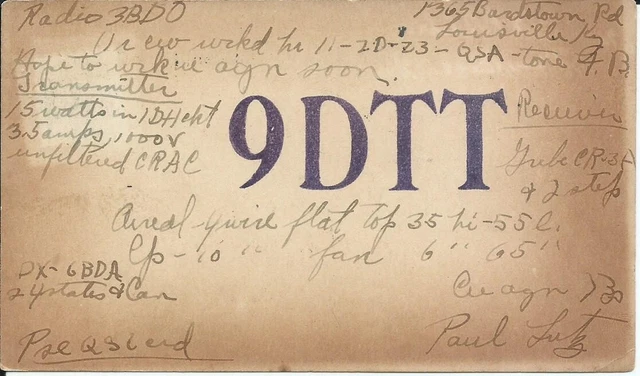 Radio 3BDO
1365 Bardstown Rd
Louisville Ky
Ur cw wrkd hr 11-20-23-QSA-tone F.B.
Hope to wrk u agn soon.
Transmitter
15 watts in 1DH ckt
3.5 amps, 1000v
unfiltered CRAC
9DTT
Receiver
Grebe CR-3A
& 2 step
Aireal 4 wire flat top 35 hi-55 l.
Cp-10 " fan 6" 65"
DX-6BDA
24 states & Can
Cu agn 73s
Pse QSL crd
Paul Lutz